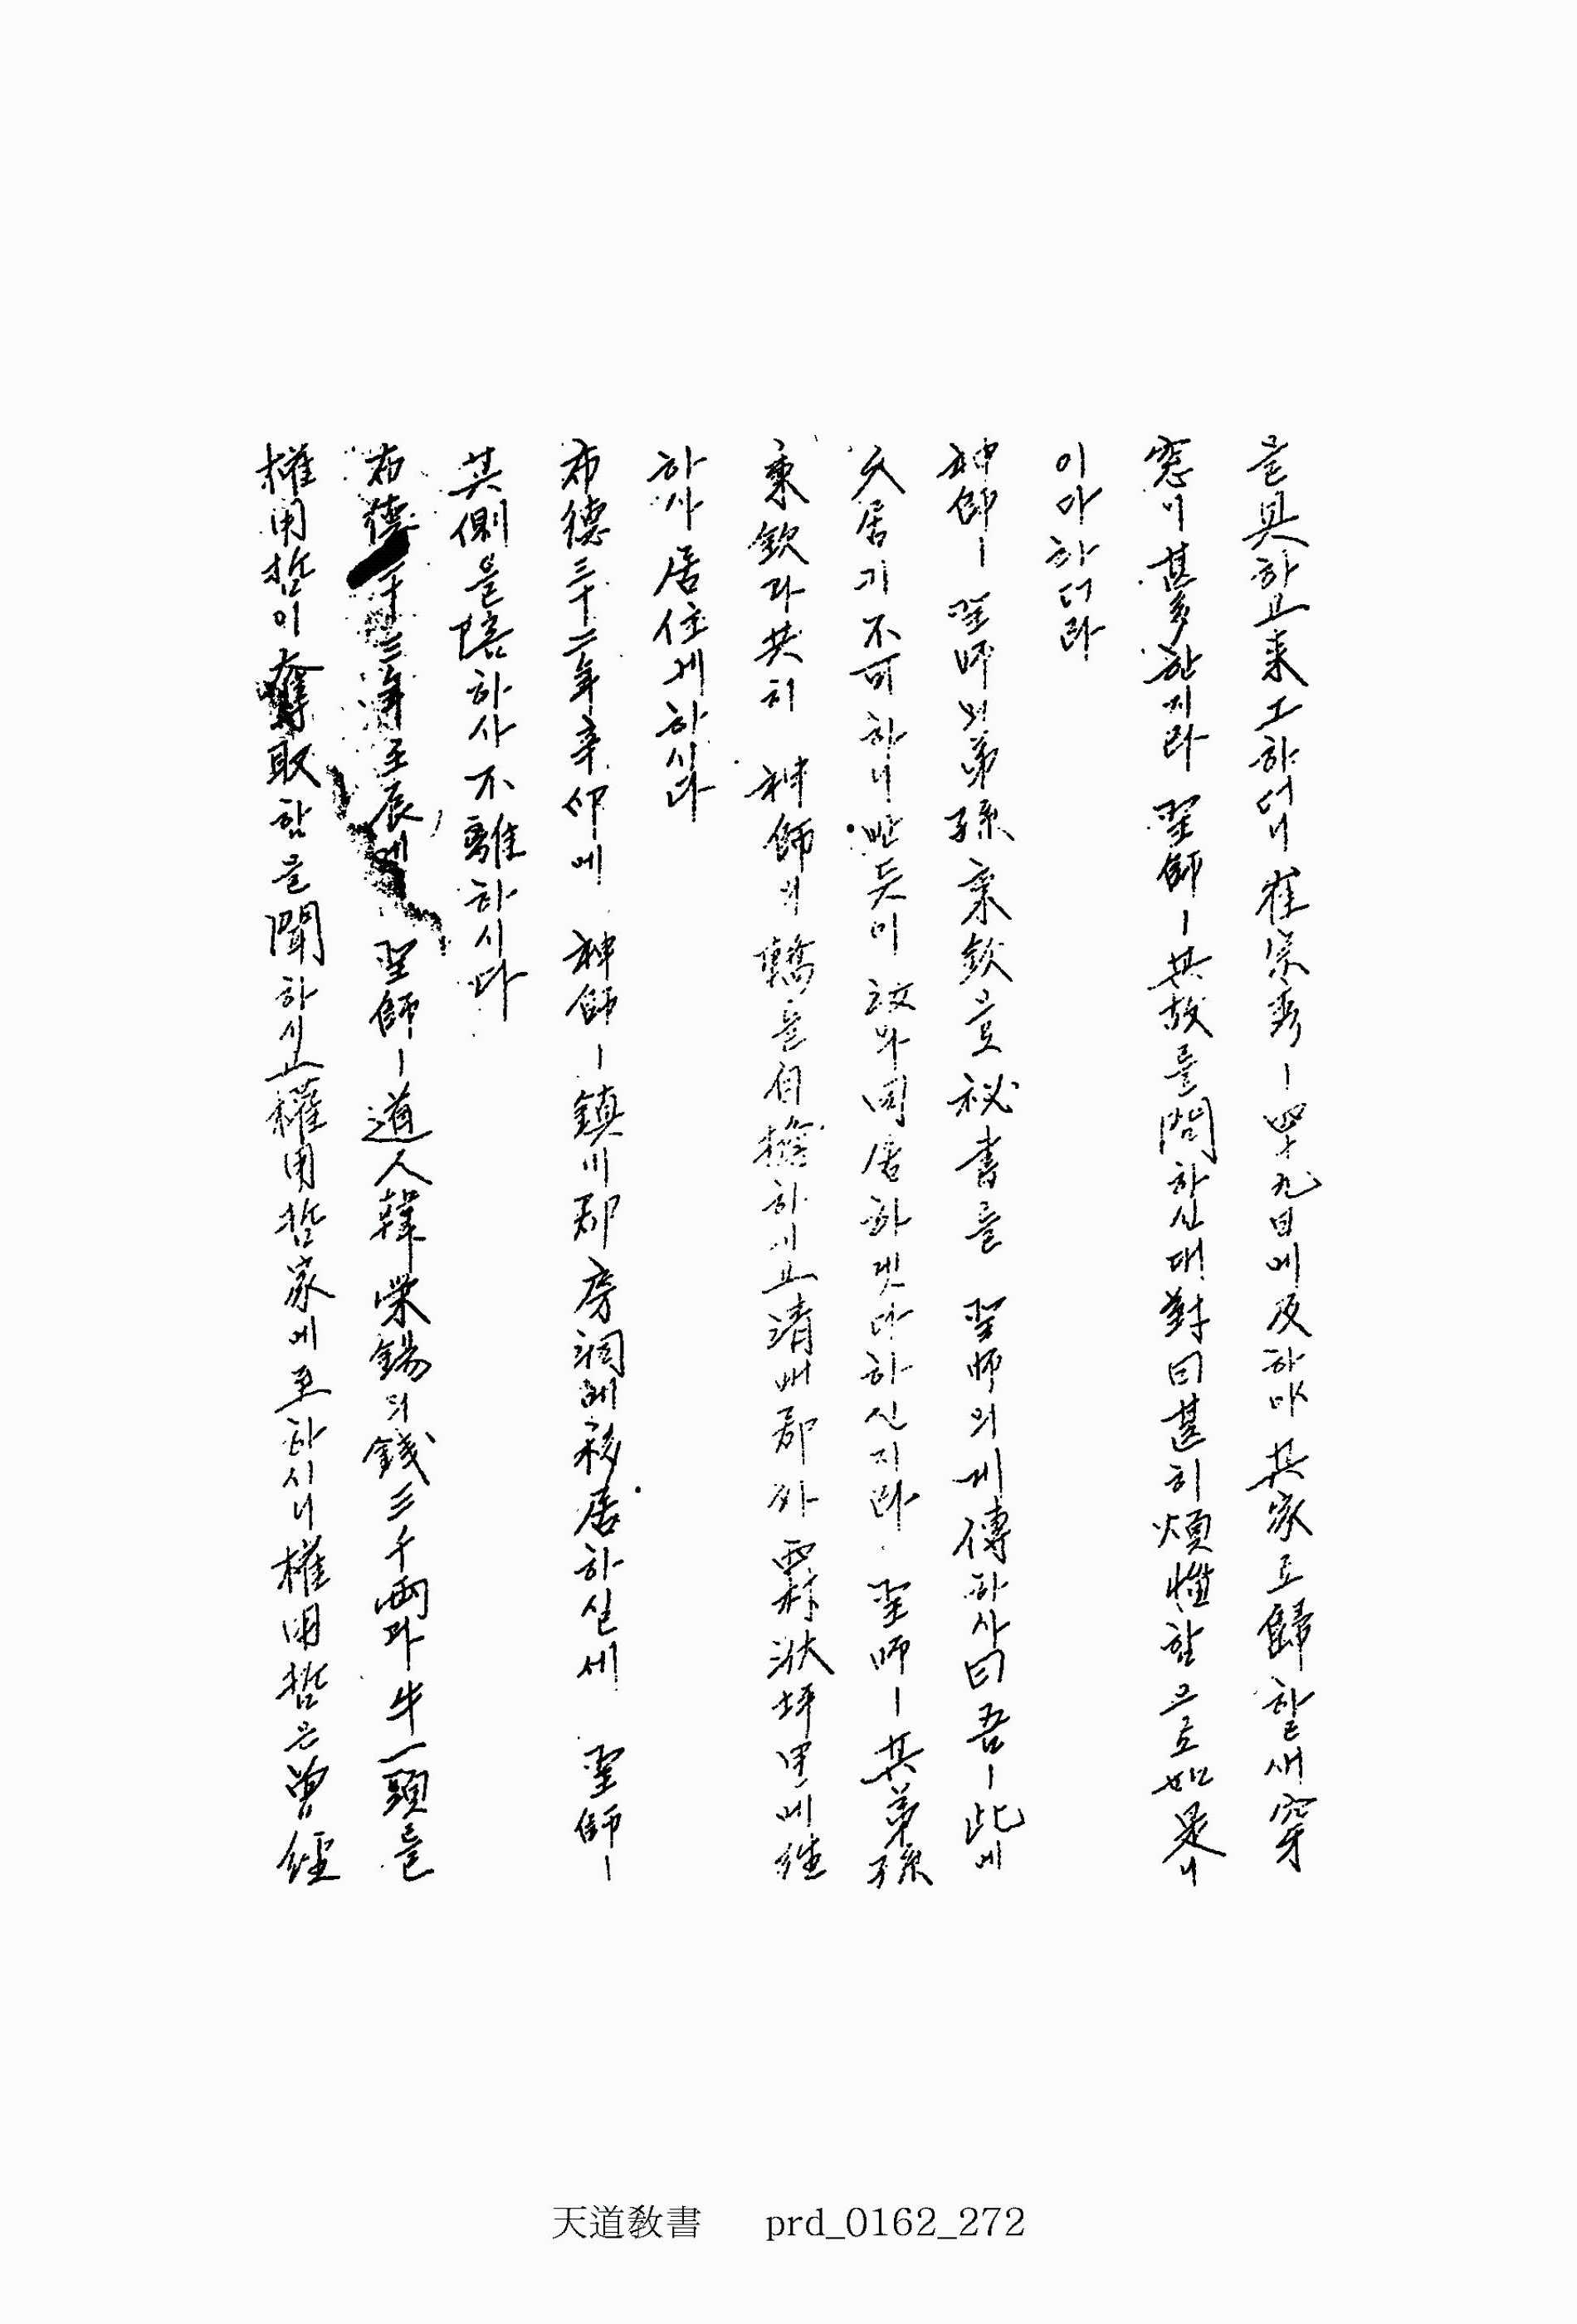 을具하고來工하더니 崔宗秀ㅣ 四十九日에及하야 其家로歸할새 穿
窓이甚多한지라 聖師ㅣ其故를問하신대 對曰甚히煩惟함으로如是니
이다하더라
神師ㅣ 聖師의弟孫秉欽으로秘書를 聖師의게傳하사曰吾ㅣ此에
久居키不可하니반듯이汝와同居하겟다하신지라 聖師ㅣ其弟孫
秉欽과共히 神師의轎를自擔하시고清州郡外西村洑坪里에
하사居住케하시다
布德三十二年辛卯에 神師ㅣ鎭川郡房洞에移居하실세 聖師ㅣ
其側을陪하사不離하시다
布德三十三年壬辰에 聖師ㅣ道人韓榮錫의錢三千兩과牛一頭를
權用哲이奪取함을聞하시고權用哲家에至하시니權用哲은曾經
天道教書 prd_0162_272